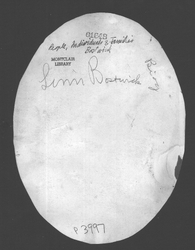 People, Individuals & Families
Bostwick
MONTCLAIR
LIBRARY
Linn Bostwick
P 3997